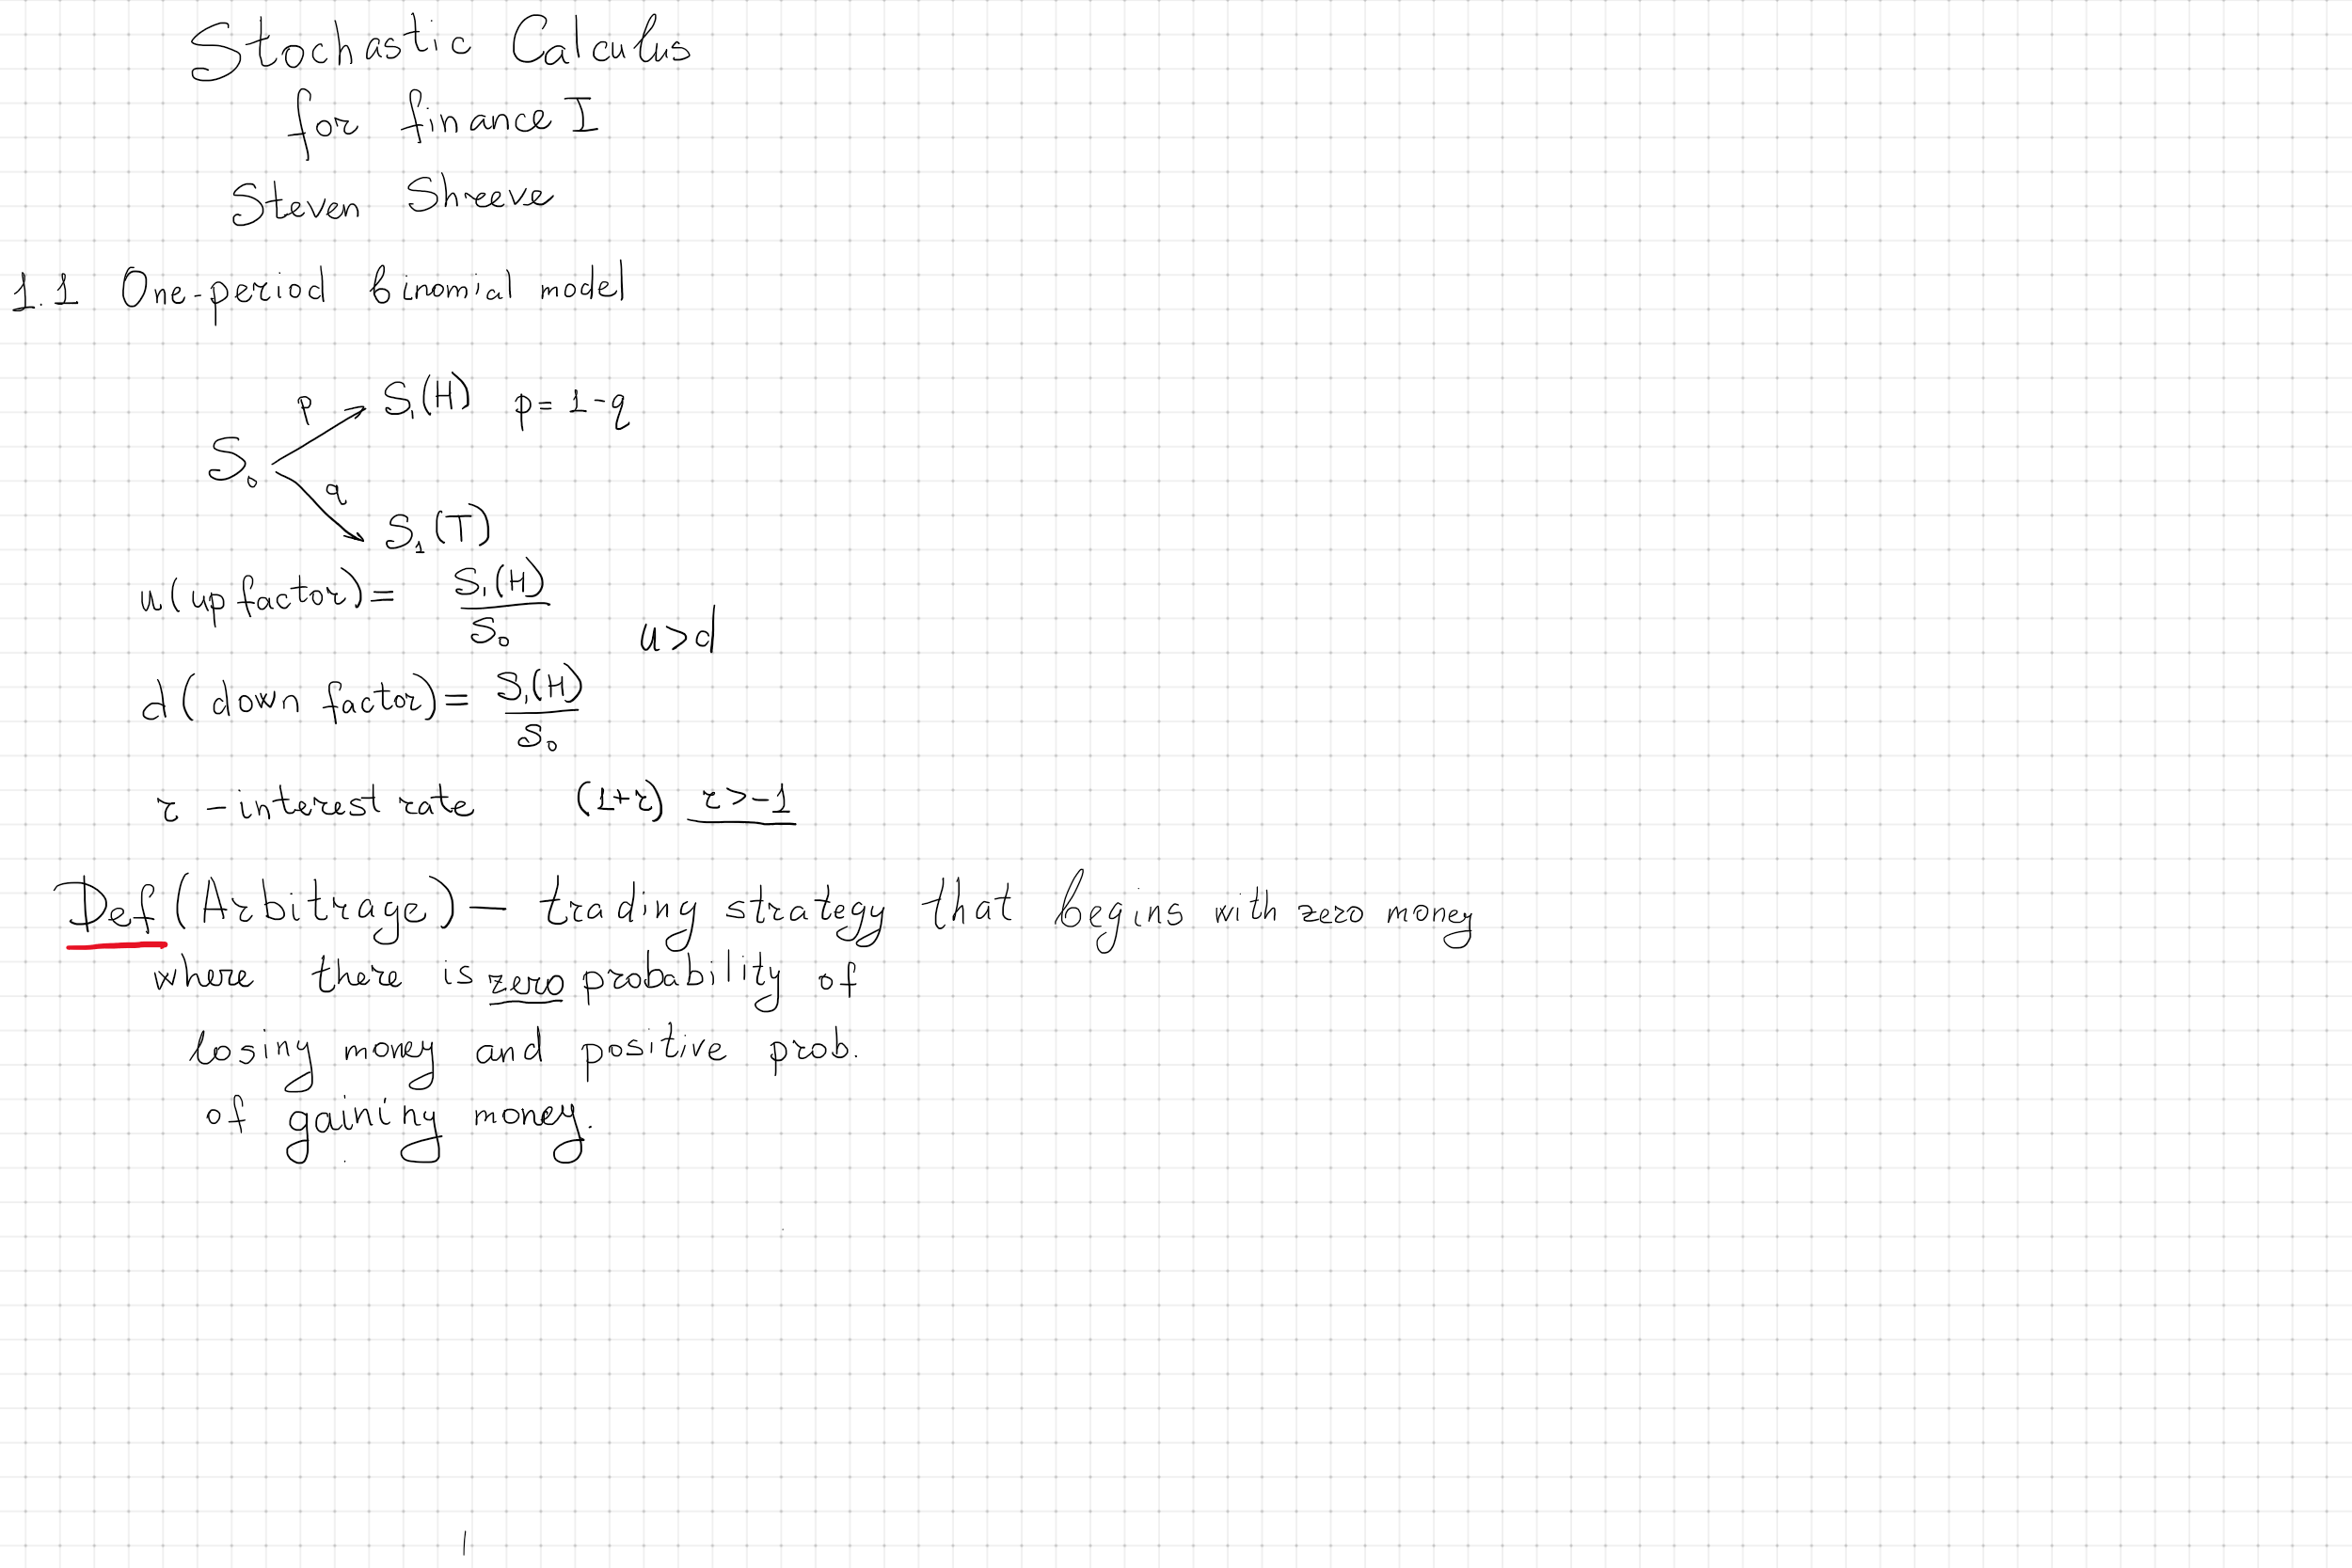 Stochastic Calculus
for finance I
Steven Shreeve
1.1 One-period binomial model
p S₁(H) p = 1-q
S₀
q
S₁(T)
u(up factor) = S₁(H)/S₀
u>d
d(down factor) = S₁(H)/S₀
r - interest rate (1+r) r>-1
Def (Arbitrage) — trading strategy that begins with zero money
where there is zero probability of
losing money and positive prob.
of gaining money.